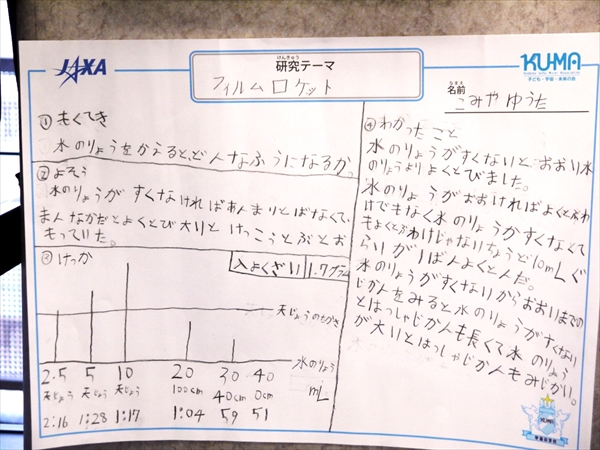 JAXA
けんきゅう
研究テーマ
フィルムロケット
KU-MA
子ども・宇宙・未来の会
なまえ
名前
こみや ゆうた
① もくてき
水のりょうをかえると、どんなふうになるか。
② よそう
水のりょうが すくなければあんまりとばなくて、
まん なかだとよくとび大いと けっこうとぶとお
もっていた。
③ けっか
入よくざい 1.7グラム
天じょうのたかさ
水のりょう
2.5 5 10 20 30 40 mL
天じょう 天じょう 天じょう 100cm 40cm 0cm
2:16 1:28 1:17 1:04 59 51
④ わかったこと
水のりょうがすくないと おおい水
のりょうよりよくとびました。
水のりょうがおおければよくとぶわ
けでもなく水のりょうがすくなくて
もよくとぶわけじゃないちょうど10mLぐ
らいがいばんよくとんだ。
水のりょうがすくないからおおいまでの
じかんをみると水のりょうがすくない
とはっしゃじかんも長くて水のりょう
が大いとはっしゃじかんもみじかい。
KU-MA